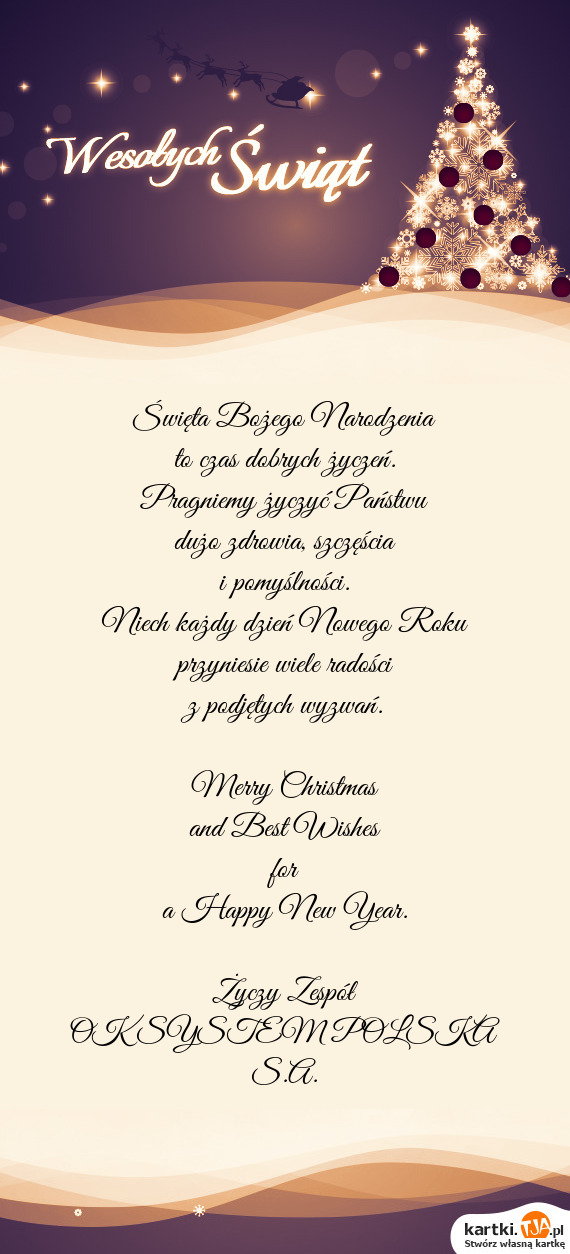 Wesołych Świąt
Święta Bożego Narodzenia
to czas dobrych życzeń.
Pragniemy życzyć Państwu
dużo zdrowia, szczęścia
i pomyślności.
Niech każdy dzień Nowego Roku
przyniesie wiele radości
z podjętych wyzwań.
Merry Christmas
and Best Wishes
for
a Happy New Year.
Życzy Zespół
OK SYSTEM POLSKA
S.A.
kartki.TJA.pl
Stwórz własną kartkę